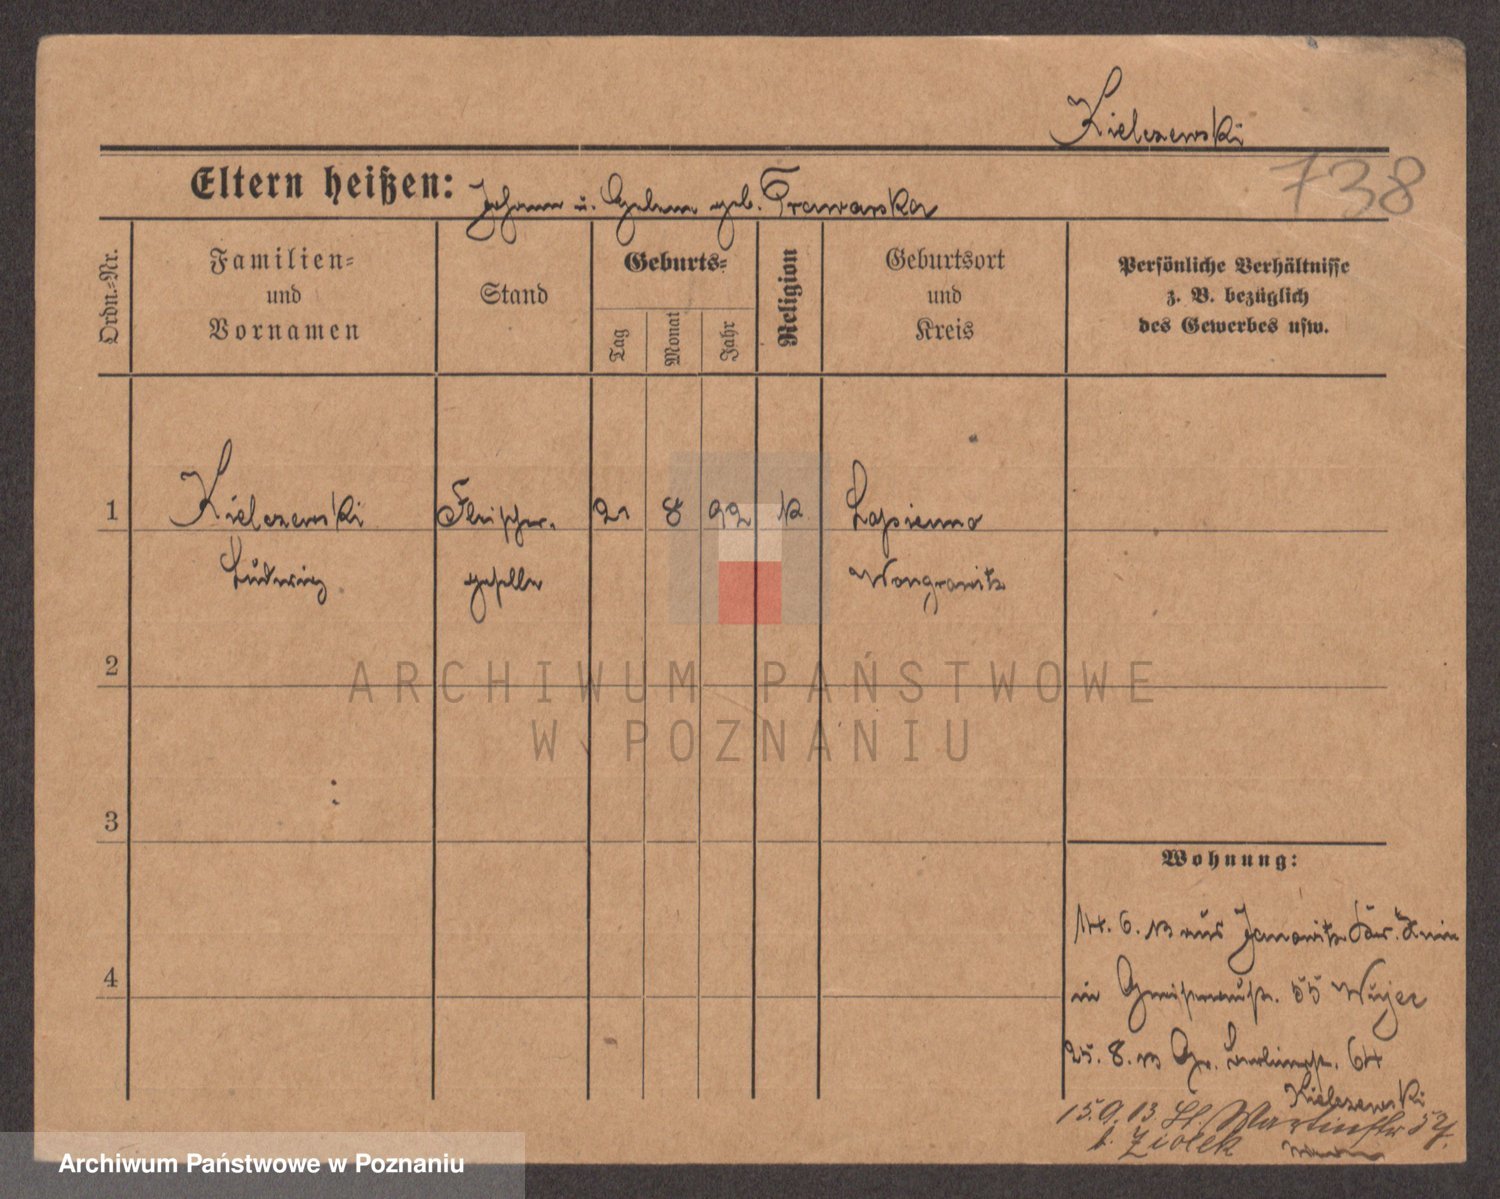 Kielczewski
738
Eltern heißen: Johann u. geb.
Ordn.=Nr.
Familien=
und
Vornamen
Stand
Geburts=
Tag
Monat
Jahr
Religion
Geburtsort
und
Kreis
Persönliche Verhältnisse
z. B. bezüglich
des Gewerbes usw.
1 Kielczewski Fleischer- 21 8 92 k Lopienno
Ludwig geselle Wongrowitz
2
3
4
Wohnung:
14. 6. 13 aus Janowitz Kr. Znin
in 55 Wujec
25. 8. 13 Gr. Berlinerstr. 64
Kielczewski
15.9.13 St. Martinstr 57.
b. Ziolek
ARCHIWUM PAŃSTWOWE
W POZNANIU
Archiwum Państwowe w Poznaniu